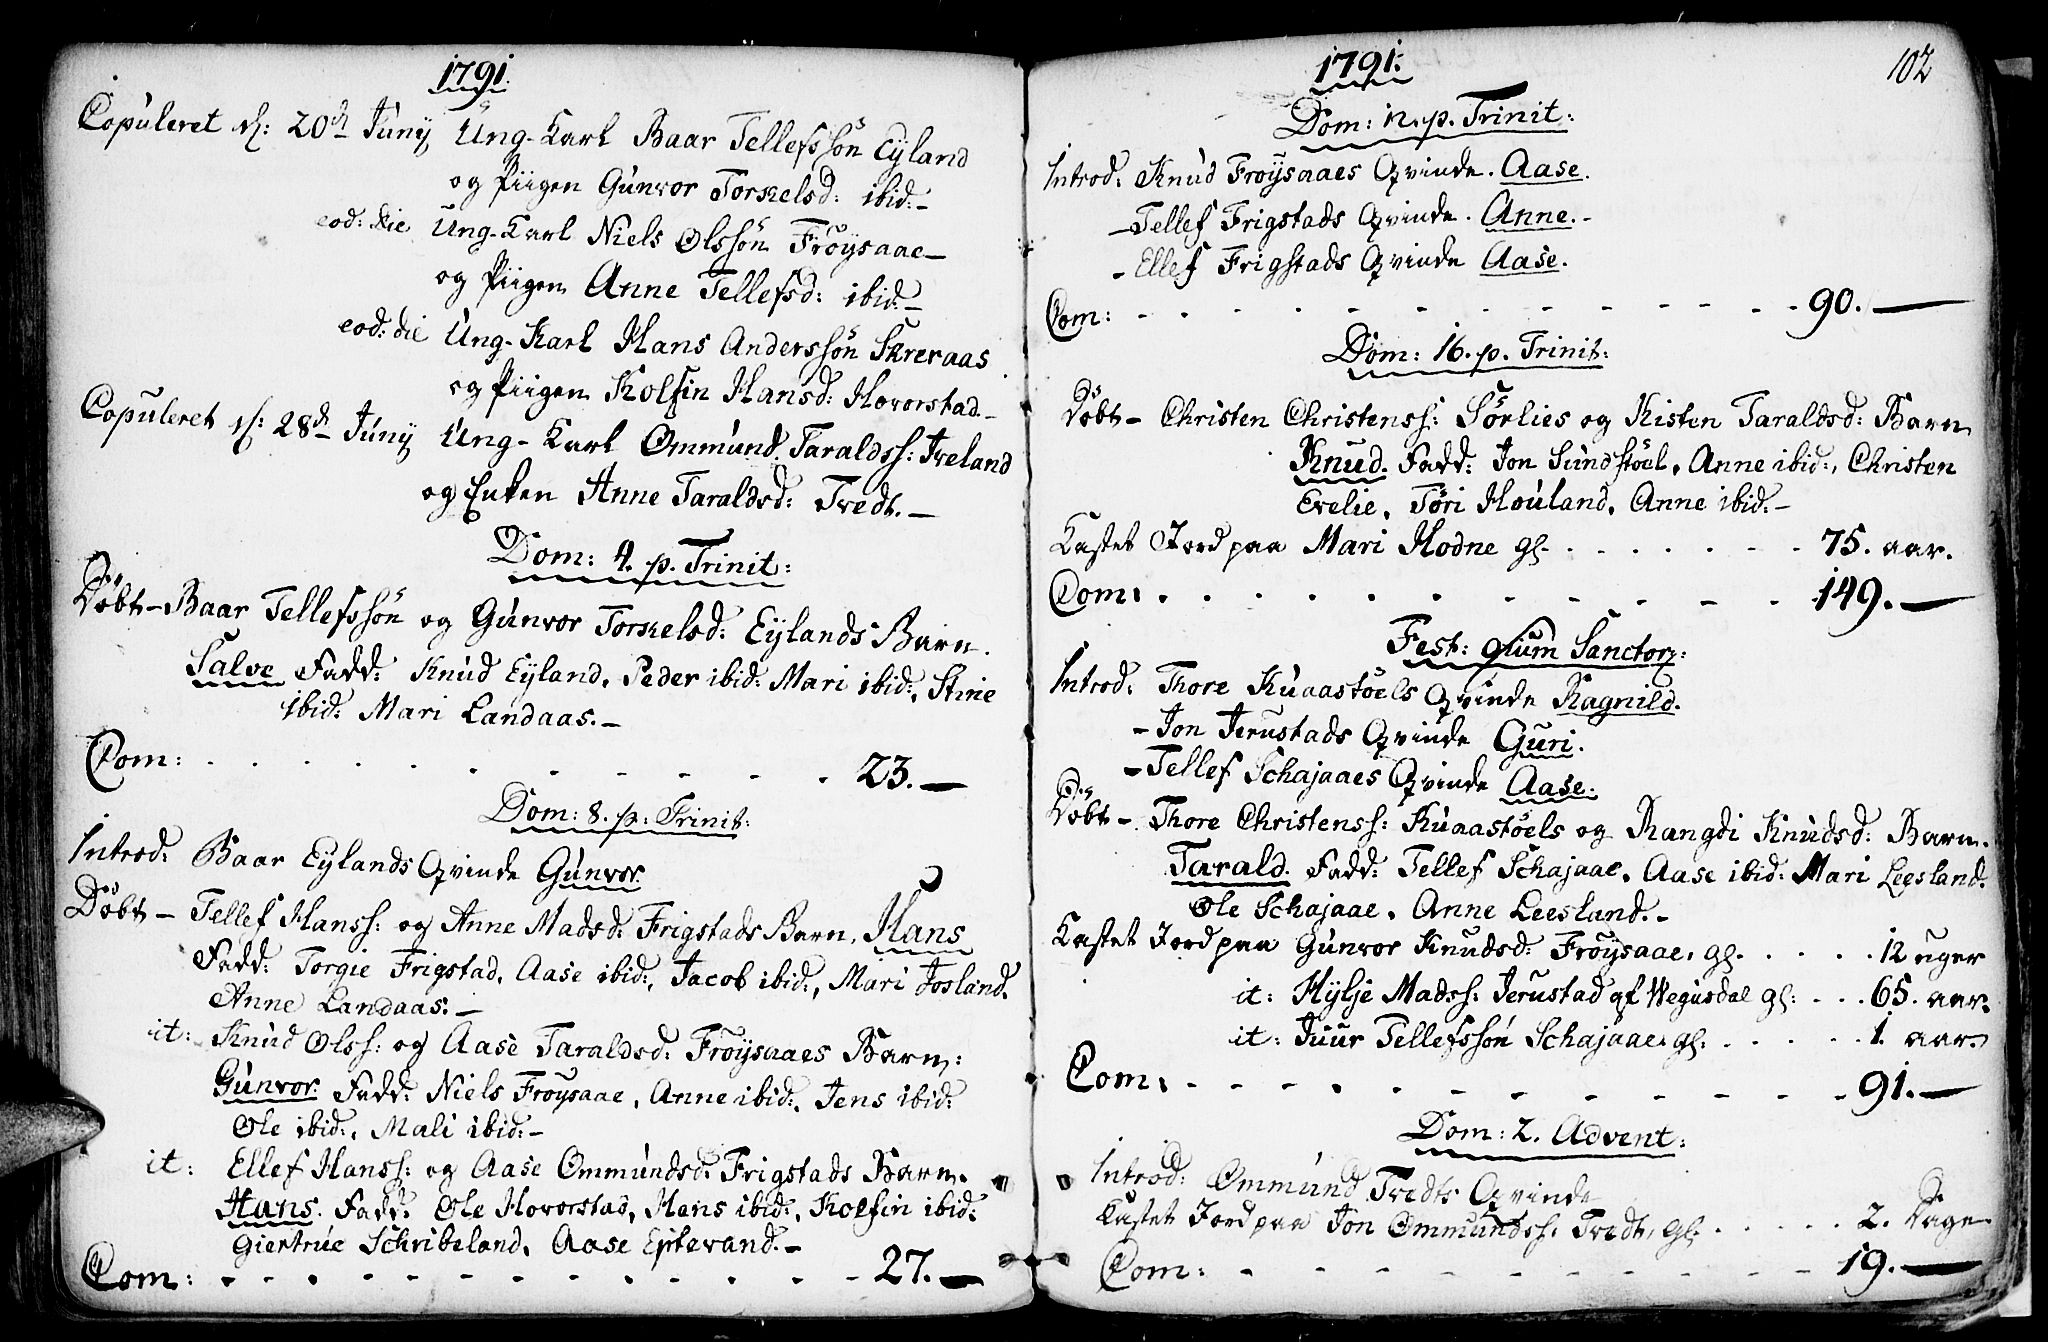 1791.
Copuleret d: 20de Juny, Ung-Karl Baar Tellefssön Eyland
og Piigen Gunvor Torkelsd: ibid:-
eod: die Ung-Karl Niels Olssön Fröysaae-
og Piigen Anne Tellefsd: ibid:-
eod: die Ung-Karl Hans Anderssön Skreraas
og Piigen Kolfin Hansd: Hovorstad-
Copuleret d: 28de Juny Ung-Karl Ommund Taraldss: Ireland
og Enken Anne Taraldsd: Tredt.-
Dom: 4. p. Trinit:
Döbt- Baar Tellefssön og Gunvor Torkelsd: Eylands Barn.
Salve Fadd: Knud Eyland, Peder ibid: Mari ibid:, Stine
ibid: Mari Landaas.-
Com: . . . . . . . . . . 23.-
Dom: 8. p. Trinit:
Introd: Baar Eylands Qvinde Gunvor.
Döbt- Tellef Hanss: og Anne Madsd: Frigstads Barn, Hans
Fadd: Torgie Frigstad, Aase ibid:, Jacob ibid:, Mari Josland.
Anne Landaas.-
it: Knud Olss: og Aase Taraldsd: Fröysaaes Barn:
Gunvor. Fadd: Niels Fröysaae, Anne ibid:, Jens ibid:
Ole ibid:, Mali ibid:-
it: Ellef Hanss: og Aase Ommundsd: Frigstads Barn.
Hans. Fadd: Ole Hovorstad, Hans ibid:, Kolfin ibid:
Giertrue Schribeland, Aase Eptevand.-
Com: - - - - - - - - - - 27.-
1791.
102
Dom: 12. p. Trinit:
Introd: Knud Fröysaaes Qvinde. Aase.
-Tellef Frigstads Qvinde. Anne.-
-Ellef Frigstads Qvinde Aase.
Com: - - - - - - - - - - 90.-
Dom: 16. p. Trinit:
Döbt- Christen Christenss: Sörlies og Kisten Taraldsd: Barn
Knud. Fadd: Jon Sundstöel, Anne ibid:, Christen
Evelie, Töri Houland, Anne ibid:-
Kastet Jord paa Mari Hodne gl. . . . . . . 75. aar.
Com: . . . . . . . . . . 149.-
Fest: oium Sanctor:
Introd: Thore Kuaastöels Qvinde Ragnild.
-Jon Jerustads Qvinde Guri.
-Tellef Schajaaes Qvinde Aase.
Döbt- Thore Christenss: Kuaastöels og Rangdi Knudsd: Barn.
Tarald. Fadd: Tellef Schajaae, Aase ibid: Mari Leesland.
Ole Schajaae, Anne Leesland.-
Kastet Jord paa Gunvor Knudsd: Fröysaae, gl. . . . . . 12 uger
it: Hylje Madss: Jerustad af Wegusdal gl: . . . 65. aar.
it: Juur Tellefssön Schajaae, gl: . . . . . 1. aar.
Com: - - - - - - - - - - 91.-
Dom: 2. Advent:
Introd: Ommund Tredts Qvinde
Kastet Jord paa Jon Ommundss: Tredt, gl: . . . . . 2. Dage.
Com: - - - - - - - - - - 19.-